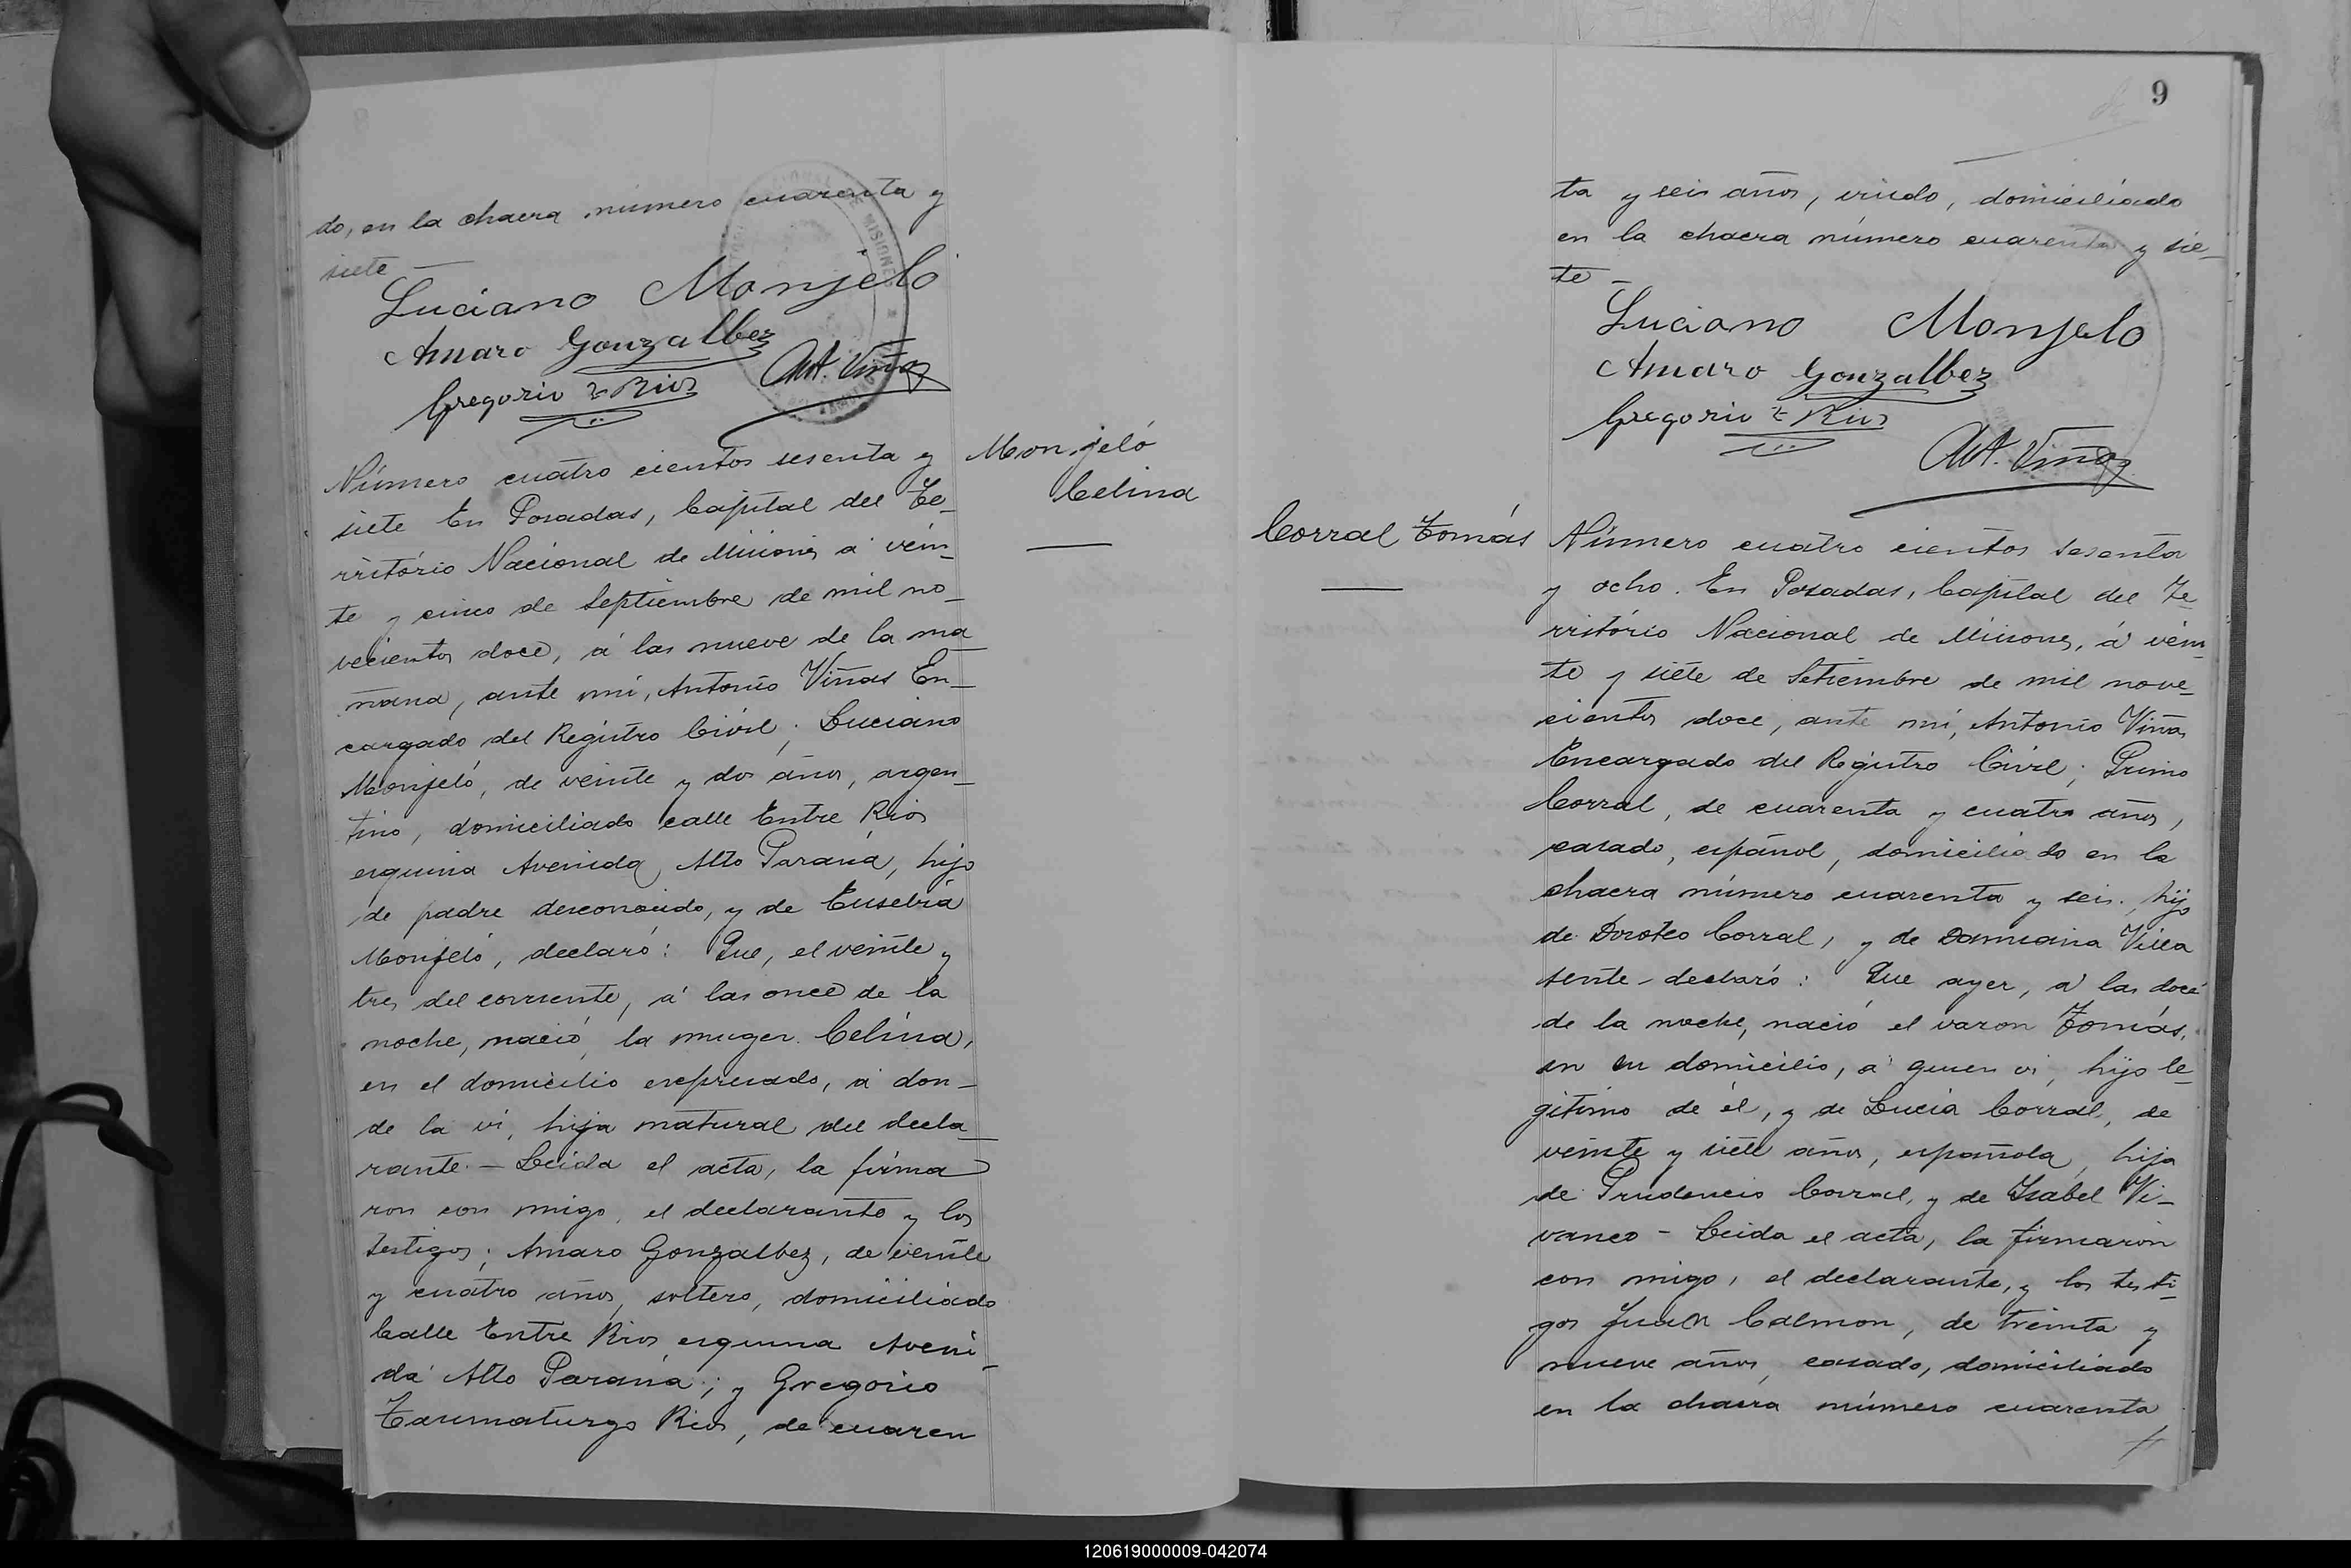 do, en la chacra número cuarenta y
siete —
Luciano Monjeló
Amaro Gonzalbez
Gregorio T Rios
Ant. Viñas
Número cuatro cientos sesenta y
siete En Posadas, Capital del Te-
rritório Nacional de Misiones á vein-
te y cinco de Septiembre de mil no-
vecientos doce, á las nueve de la ma
ñana, ante mi, Antonio Viñas En-
cargado del Registro Civil; Luciano
Monjeló, de veinte y dos años, argen-
tino, domiciliado calle Entre Rios
esquina Avenida Alto Paraná, hijo
de padre desconocido, y de Eusebia
Monjeló, declaró: Que, el veinte y
tres del corriente, á las once de la
noche, nació la muger Celina,
en el domicilio expresado, á don-
de la ví, hija natural del decla-
rante. — Leida el acta, la firma
ron con migo, el declarante y los
testigos; Amaro Gonzalbez, de veinte
y cuatro años, soltero, domiciliado
Calle Entre Rios esquina Aveni-
da Alto Paraná; y Gregorio
Taumaturgo Rios, de cuaren
Monjeló
Celina
9
ta y seis años, viudo, domiciliado
en la chacra número cuarenta y sie-
te —
Luciano Monjelo
Amaro Gonzalbez
Gregorio T Rios
Ant. Viñas
Corral Tomás
Número cuatro cientos sesenta
y ocho. En Posadas, Capital del Te-
rritório Nacional de Misiones, á vein-
te y siete de Setiembre de mil nove-
cientos doce, ante mi, Antonio Viñas
Encargado del Registro Civil; Primo
Corral, de cuarenta y cuatro años,
casado, español, domiciliado en la
chacra número cuarenta y seis, hijo
de Doroteo Corral, y de Damiana Villa
sente - declaró: Que ayer, á las doce
de la noche, nació el varon Tomás,
en su domicilio, á quien ví, hijo le-
gitimo de él, y de Lucia Corral, de
veinte y siete años, española, hija
de Prudencio Corral, y de Isabel Vi-
vanco - Leida el acta, la firmaron
con migo, el declarante, y los testi-
gos Juan Calmon, de treinta y
nueve años, casado, domiciliado
en la chacra número cuarenta
120619000009-042074